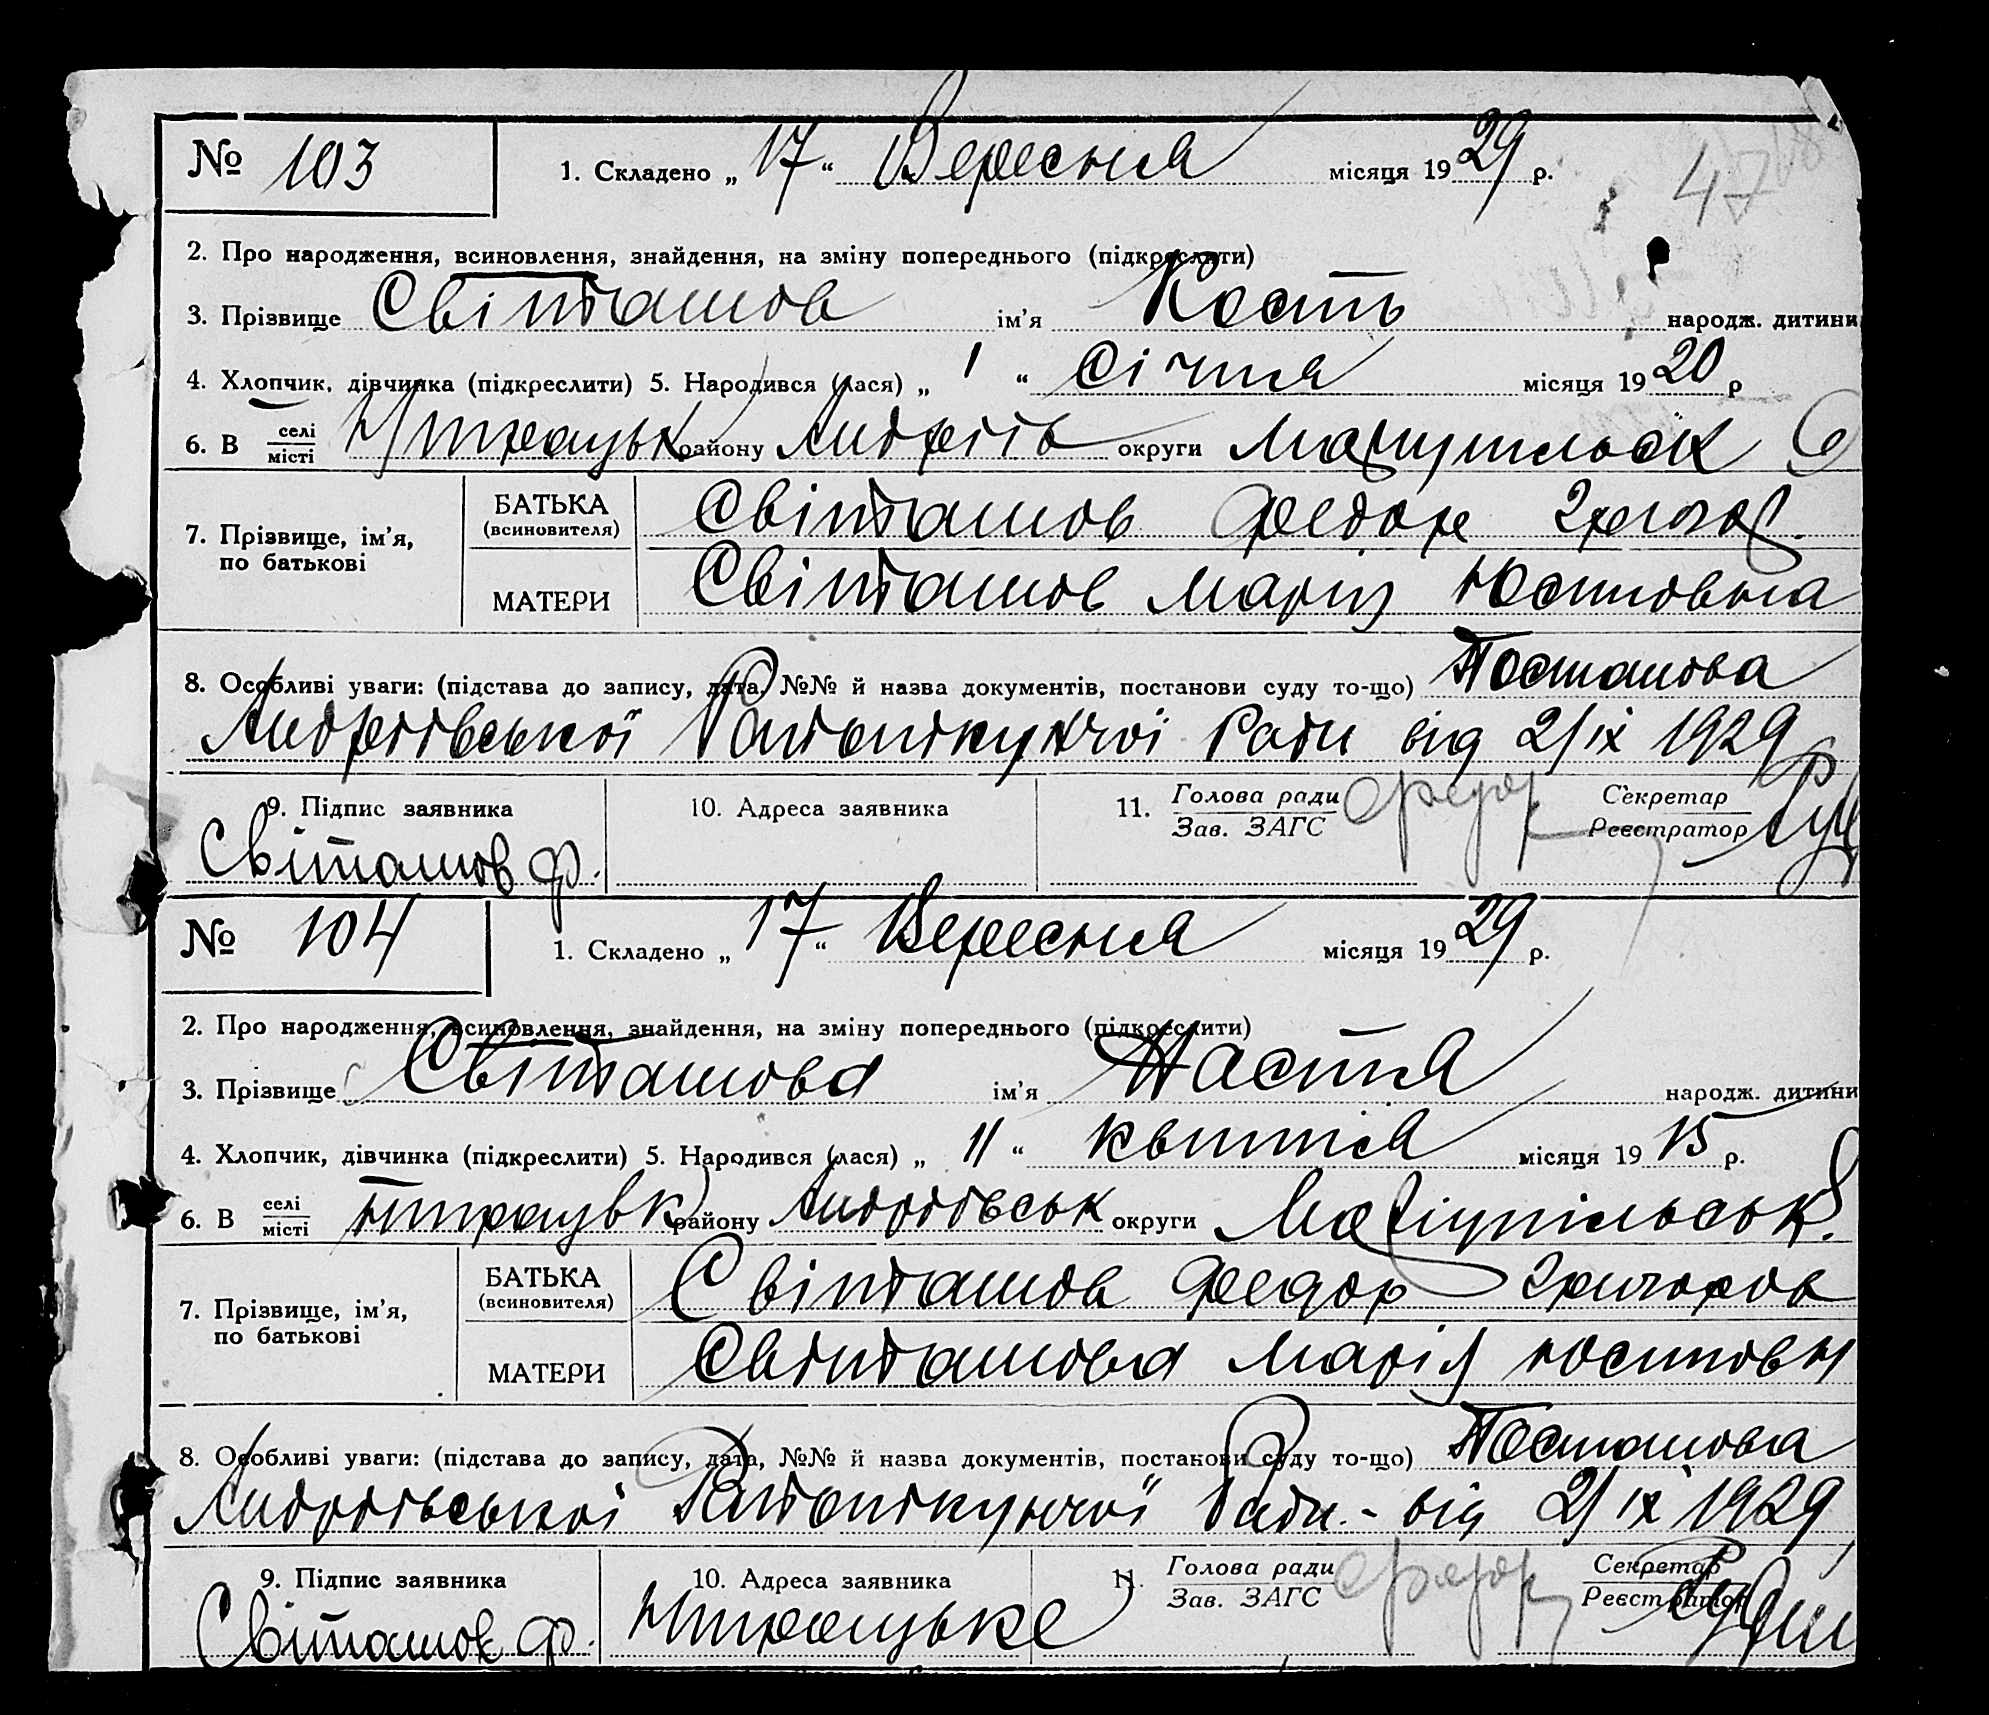 47
№ 103 1. Складено „17“ Вересня місяця 1929 р.
2. Про народження, всиновлення, знайдення, на зміну попереднього (підкреслити)
3. Прізвище Світашов ім’я Кость народж. дитини
4. Хлопчик, дівчинка (підкреслити) 5. Народився (лася) „1“ Січня місяця 1920 р
6. В селі місті району Андріїв округи
7. Прізвище, ім’я, по батькові
БАТЬКА (всиновителя) Світашов Федор Григор.
МАТЕРИ Світашов Марія
8. Особливі уваги: (підстава до запису, дата, №№ й назва документів, постанови суду то-що) Постанова
Андріївської Ради від 2/ІХ 1929
9. Підпис заявника 10. Адреса заявника 11. Голова ради Зав. ЗАГС Федор Секретар Реєстратор
Світашов Ф.
№ 104 1. Складено „17“ Вересня місяця 1929 р.
2. Про народження, всиновлення, знайдення, на зміну попереднього (підкреслити)
3. Прізвище Світашова ім’я Настя народж. дитини
4. Хлопчик, дівчинка (підкреслити) 5. Народився (лася) „11“ квітня місяця 1915 р.
6. В селі місті району Андріївськ округи Маріупільськ.
7. Прізвище, ім’я, по батькові
БАТЬКА (всиновителя) Світашов Федор Григоров
МАТЕРИ Світашова Марія
8. Особливі уваги: (підстава до запису, дата, №№ й назва документів, постанови суду то-що) Постанова
Андріївської Ради - від 2/ІХ 1929
9. Підпис заявника 10. Адреса заявника 11. Голова ради Зав. ЗАГС Федор Секретар Реєстратор
Світашов Ф.